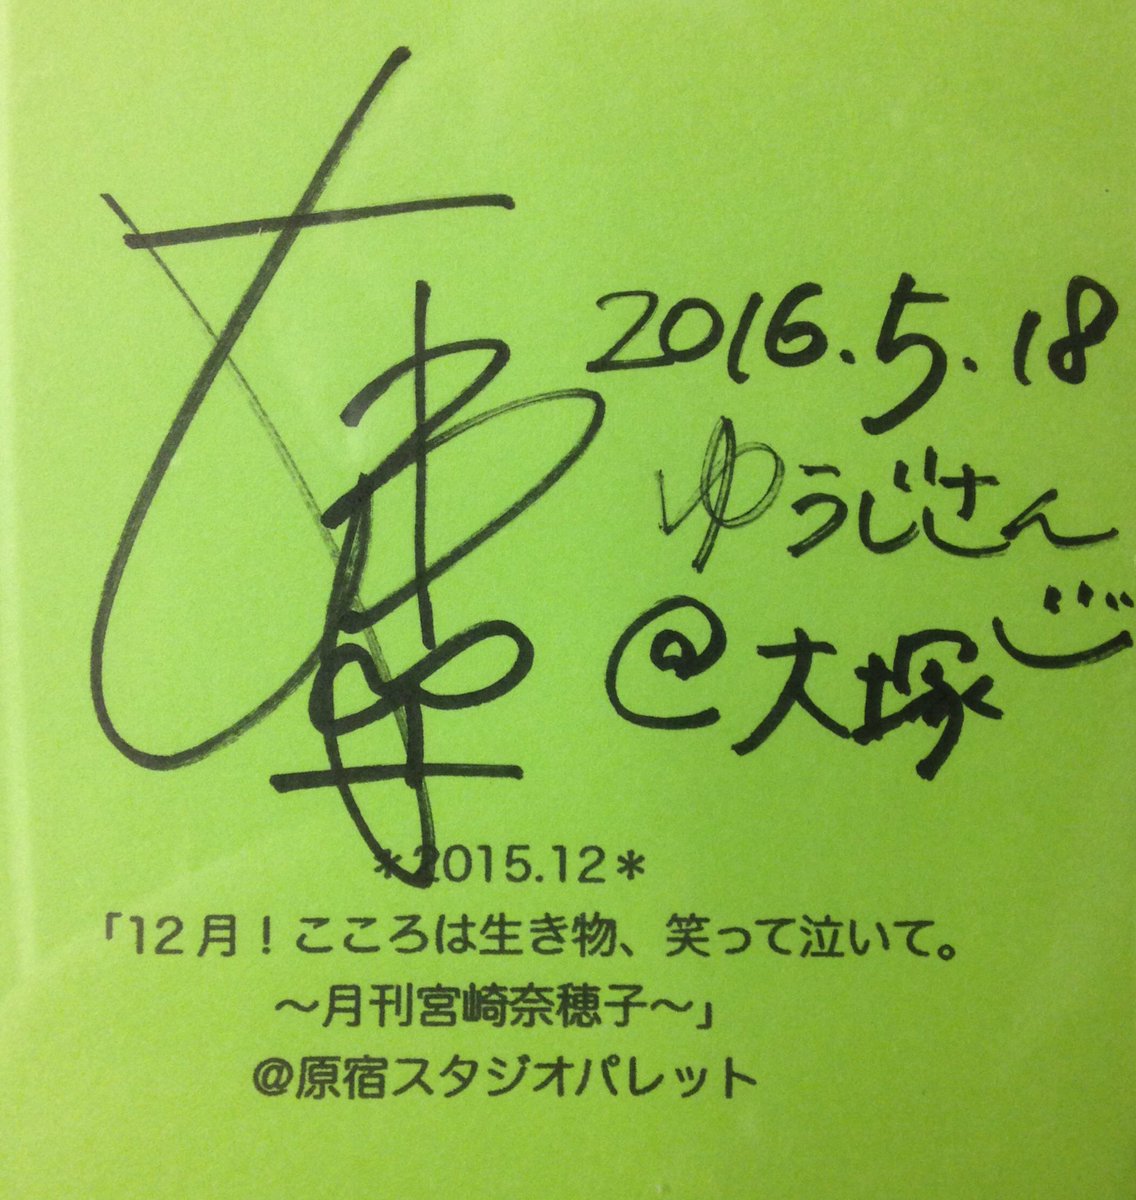 2016.5.18
ゆうじさん
@大塚
*2015.12*
「12月！こころは生き物、笑って泣いて。
～月刊宮崎奈穂子～」
@原宿スタジオパレット